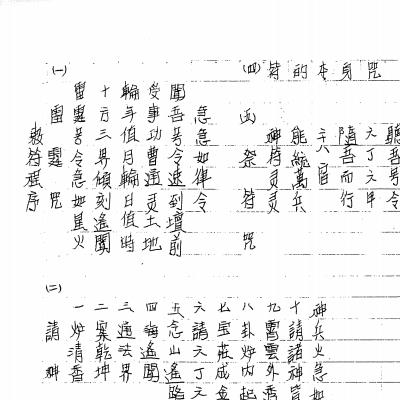 ㈣ 符的本身咒
聽吾号令
六丁六甲
隨吾而行
能統萬兵
神符灵灵
祭符咒
急急如律令
聞吾号令速到壇前
受事功曹通灵土地
輪年值月輪日值時
十方三界傾刻遙聞
雷霆号令急如星火
㈠ 雷霆咒
敕符程序
神兵火急如
十請諸神皆
九霄雲外香
八卦炉内起
七宝莊成金
六請六丁六
五念山遙路
四海遙聞
三通法界
二案乾坤
一炉清香
㈡ 請神